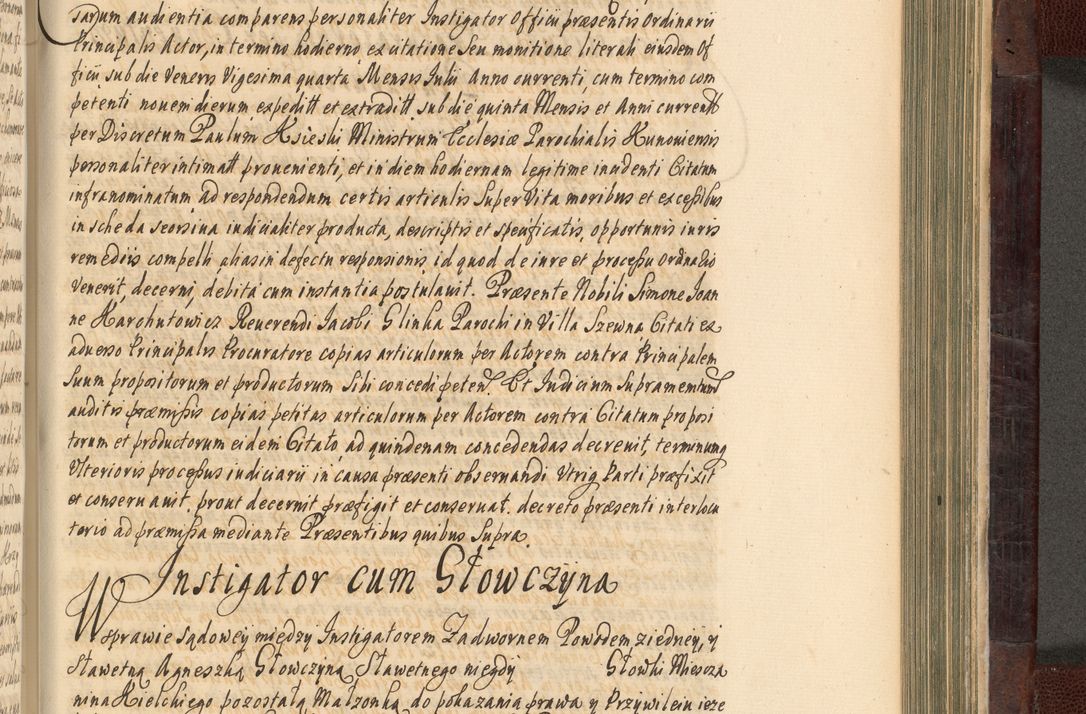 sarum audientia comparens personaliter Instigator Officii præsentis Ordinarii
Principalis Actor, in termino hodierno, ex citatione seu monitione literali eiusdem Of
ficii sub die Veneris Vigesima quarta Mensis Iulii Anno currenti, cum termino com
petenti nouem dierum expeditt et extraditt. sub die quinta Mensis et Anni currentt
per Discretum Paulum Ksieski Ministrum Ecclesiæ Parochialis Hunouiensis
personaliter intimatt prouenienti, et in diem hodiernam legitime incidenti Citatum
infranominatum ad respondendum certis articulis super Vita moribus et excessibus
in scheda seorsiua iudicialiter producta, descriptis et specificatis, opportunis iuris
remediis compelli, alias in defectu responsionis, id quod de iure et processu ordinario
Venerit, decerni, debita cum instantia postulauit. Præsente Nobili Simone Ioan
ne Harchutowicz Reuerendi Iacobi Glinka Parochi in Villa Szewna Citati ex
aduerso Principalis Procuratore copias articulorum per Actorem contra Principalem
Suum propositorum et productorum Sibi concedi peten. Et Iudicium supramentum
auditis præmissis copias petitas articulorum per Actorem contra Citatum proposi
torum et productorum eidem Citato, ad quindenam concedendas decreuit, terminumq
Vlterioris processus iudiciarii in causa præsenti obseruandi Vtriq Parti præfixit
et conseruauit. prout decernit præfigit et conseruat. decreto præsenti interlocu
torio ad præmissa mediante Præsentibus quibus Supra.
Instigator cum Słowczÿna
W sprawie sądowey między Instigatorem Zadwornem Powodem, z iedney, ÿ
Sławetną Agneszką Głowczyną, Sławetnego niegdy Głowki Miescza
nina Kielchiego pozostałą Małzonką, do pokazania prawa y Przywileiu ieze